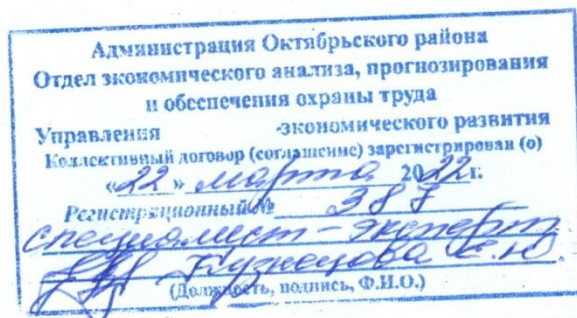 Администрация Октябрьского района
Отдел экономического анализа, прогнозирования
и обеспечения охраны труда
Управления -экономического развития
Коллективный договор (соглашение) зарегистрирован (о)
«22» марта 2022г.
Регистрационный №
специалист-эксперт
Кузнецова Е.Ю.
(Должность, подпись, Ф.И.О.)